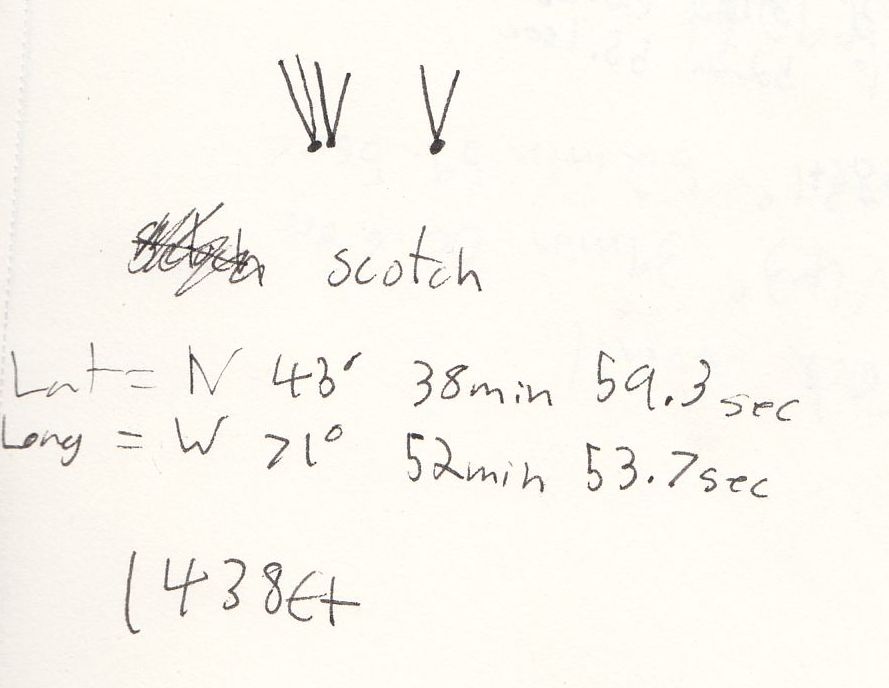 scotch
Lat = N 43° 38min 59.3sec
Long = W 71° 52min 53.7sec
1438ft